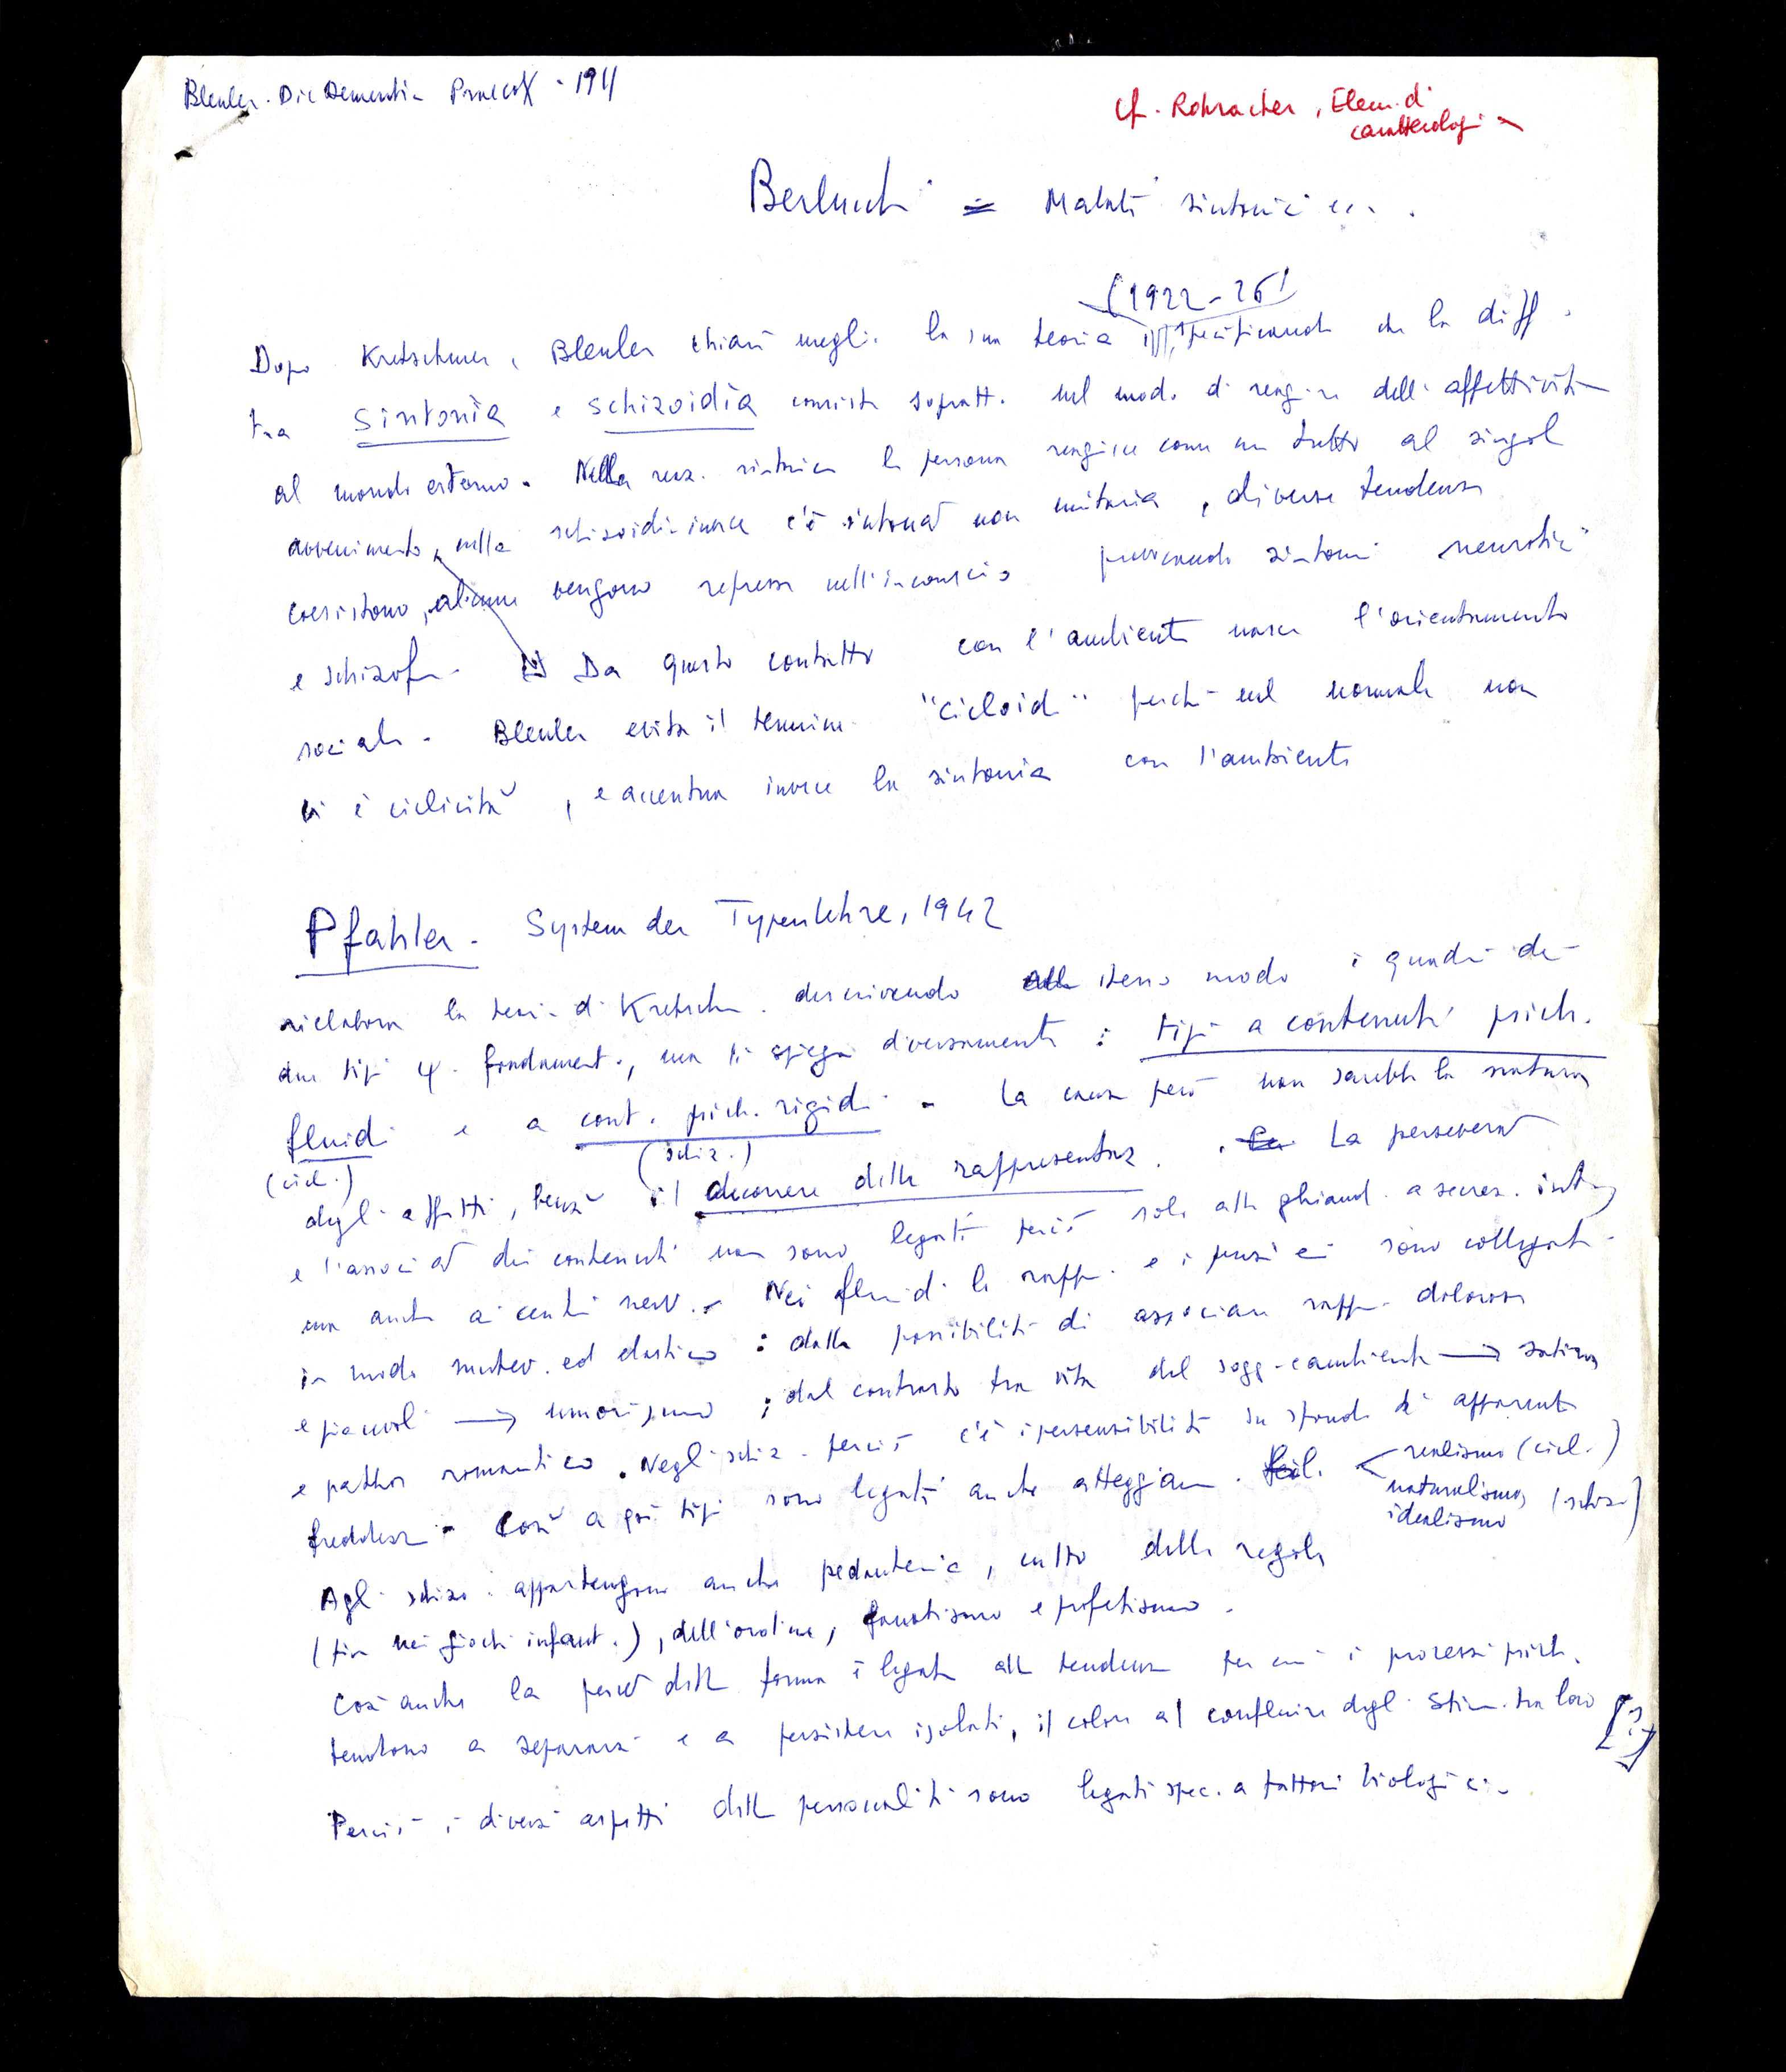 Bleuler. Die Dementia Praecox - 1911
Cf. Rohracher, Elem. di
caratterologia
Berlucchi = Malati sintonici ecc.
(1922-26)
Dopo Kretschmer, Bleuler chiarì meglio la sua teoria specificando che la diff.
tra sintonìa e schizoidìa consiste sopratt. nel modo di reagire dell'affettività
al mondo esterno. Nella reaz. sintonica la persona reagisce come un tutto al singolo
avvenimento, nella schizoidia invece c'è non unitaria, diverse tendenze
coesistono, alcune vengono represse nell'inconscio provocando sintomi neurotici
e schizofr. Da questo contatto con l'ambiente nasce l'orientamento
sociale. Bleuler evita il termine "cicloide" perché nel normale non
vi è ciclicità, e accentua invece la sintonia con l'ambiente
Pfahler - System der Typenlehre, 1942
rielabora la teoria di Kretschm. descrivendo stesso modo i quadri dei
due tipi ψ. fondament., ma li spiega diversamente: tipi a contenuti psich.
fluidi e a cont. psich. rigidi. La causa però non sarebbe la natura
(cicl.) (schiz.)
degli affetti, bensì il decorrere delle rappresentaz. La perseveraz
e l'associaz dei contenuti non sono legati perciò solo alle ghiand. a secrez. interna
ma anche ai centri nerv. Nei fluidi le rappr. e i pensieri sono collegati
in modo mutev. ed elastico: dalla possibilità di associare rappr. dolorose
e piacevoli → umorismo; dal contrasto tra vita del sogg. e ambiente → satira
e pathos romantico. Negli schiz. perciò c'è ipersensibilità su sfondo di apparente
freddezza. Così a qsti tipi sono legati anche atteggiam. fil. < realismo (cicl.)
naturalismo, (schiz.)
idealismo
Agli schizo. appartengono anche pedanteria, culto della regola
(fin nei giochi infant.), dell'ordine, fanatismo e profetismo.
Così anche la percez della forma è legata alla tendenza per cui i processi psich.
tendono a separarsi e a persistere isolati, il colore al confluire degli stim. tra loro [?]
Perciò i diversi aspetti della personalità sono legati spec. a fattori biologici.